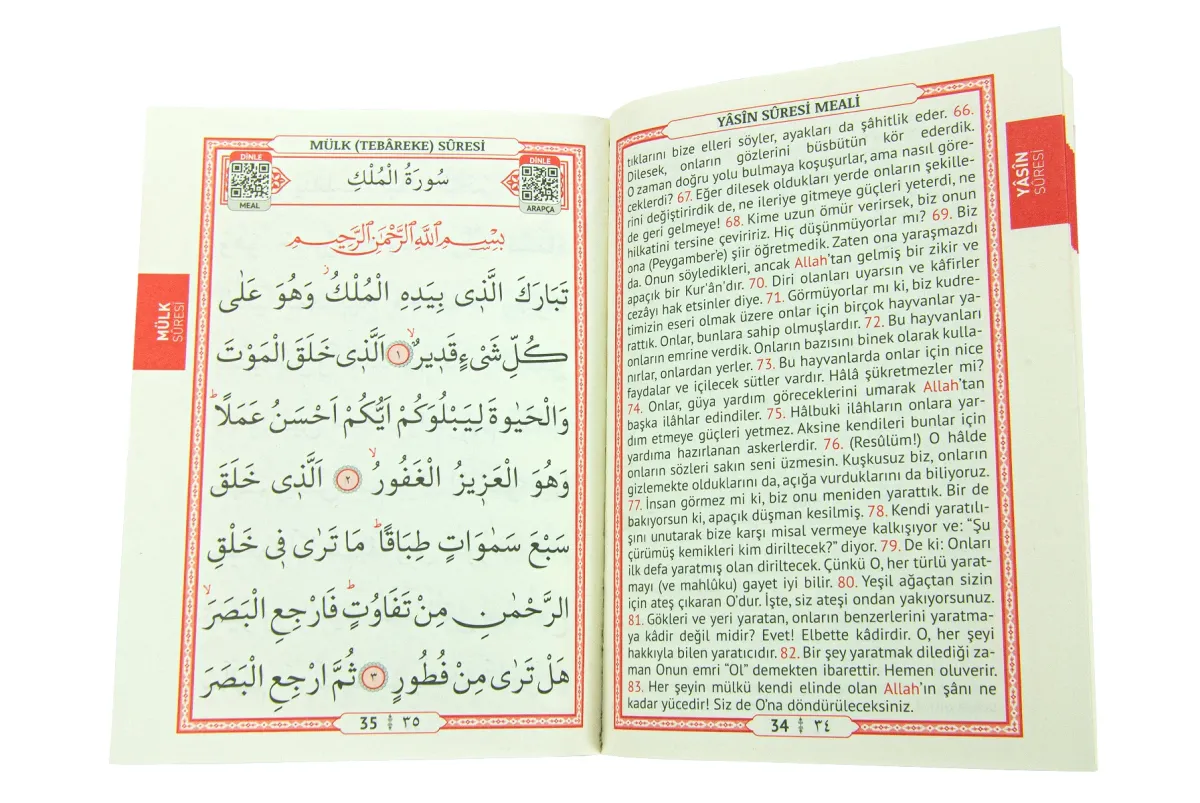 YÂSÎN SÛRESİ MEALİ
tıklarını bize elleri söyler, ayakları da şâhitlik eder. 66.
Dilesek, onların gözlerini büsbütün kör ederdik.
O zaman doğru yolu bulmaya koşuşurlar, ama nasıl göre-
ceklerdi? 67. Eğer dilesek oldukları yerde onların şekille-
rini değiştirirdik de, ne ileriye gitmeye güçleri yeterdi, ne
de geri gelmeye! 68. Kime uzun ömür verirsek, biz onun
hilkatini tersine çeviririz. Hiç düşünmüyorlar mı? 69. Biz
ona (Peygamber'e) şiir öğretmedik. Zaten ona yaraşmazdı
da. Onun söyledikleri, ancak Allah'tan gelmiş bir zikir ve
apaçık bir Kur'ân'dır. 70. Diri olanları uyarsın ve kâfirler
cezâyı hak etsinler diye. 71. Görmüyorlar mı ki, biz kudre-
timizin eseri olmak üzere onlar için birçok hayvanlar ya-
rattık. Onlar, bunlara sahip olmuşlardır. 72. Bu hayvanları
onların emrine verdik. Onların bazısını binek olarak kulla-
nırlar, onlardan yerler. 73. Bu hayvanlarda onlar için nice
faydalar ve içilecek sütler vardır. Hâlâ şükretmezler mi?
74. Onlar, güya yardım göreceklerini umarak Allah'tan
başka ilâhlar edindiler. 75. Hâlbuki ilâhların onlara yar-
dım etmeye güçleri yetmez. Aksine kendileri bunlar için
yardıma hazırlanan askerlerdir. 76. (Resûlüm!) O hâlde
onların sözleri sakın seni üzmesin. Kuşkusuz biz, onların
gizlemekte olduklarını da, açığa vurduklarını da biliyoruz.
77. İnsan görmez mi ki, biz onu meniden yarattık. Bir de
bakıyorsun ki, apaçık düşman kesilmiş. 78. Kendi yaratılı-
şını unutarak bize karşı misal vermeye kalkışıyor ve: "Şu
çürümüş kemikleri kim diriltecek?" diyor. 79. De ki: Onları
ilk defa yaratmış olan diriltecek. Çünkü O, her türlü yarat-
mayı (ve mahlûku) gayet iyi bilir. 80. Yeşil ağaçtan sizin
için ateş çıkaran O'dur. İşte, siz ateşi ondan yakıyorsunuz.
81. Gökleri ve yeri yaratan, onların benzerlerini yaratma-
ya kâdir değil midir? Evet! Elbette kâdirdir. O, her şeyi
hakkıyla bilen yaratıcıdır. 82. Bir şey yaratmak dilediği za-
man Onun emri "Ol" demekten ibarettir. Hemen oluverir.
83. Her şeyin mülkü kendi elinde olan Allah'ın şânı ne
kadar yücedir! Siz de O'na döndürüleceksiniz.
34 ٣٤
YÂSÎN
SÛRESİ
MÜLK (TEBÂREKE) SÛRESİ
DİNLE
MEAL
سُورَةُ الْمُلْكِ
DİNLE
ARAPÇA
بِسْمِ اللّٰهِ الرَّحْمٰنِ الرَّحِيمِ
تَبَارَكَ الَّذ۪ي بِيَدِهِ الْمُلْكُۘ وَهُوَ عَلٰى
كُلِّ شَيْءٍ قَد۪يرٌۙ ﴿١﴾ اَلَّذ۪ي خَلَقَ الْمَوْتَ
وَالْحَيٰوةَ لِيَبْلُوَكُمْ اَيُّكُمْ اَحْسَنُ عَمَلًاۜ
وَهُوَ الْعَز۪يزُ الْغَفُورُۙ ﴿٢﴾ اَلَّذ۪ي خَلَقَ
سَبْعَ سَمٰوَاتٍ طِبَاقًاۜ مَا تَرٰى ف۪ي خَلْقِ
الرَّحْمٰنِ مِنْ تَفَاوُتٍۜ فَارْجِعِ الْبَصَرَۙ
هَلْ تَرٰى مِنْ فُطُورٍ ﴿٣﴾ ثُمَّ ارْجِعِ الْبَصَرَ
35 ٣٥
MÜLK
SÛRESİ